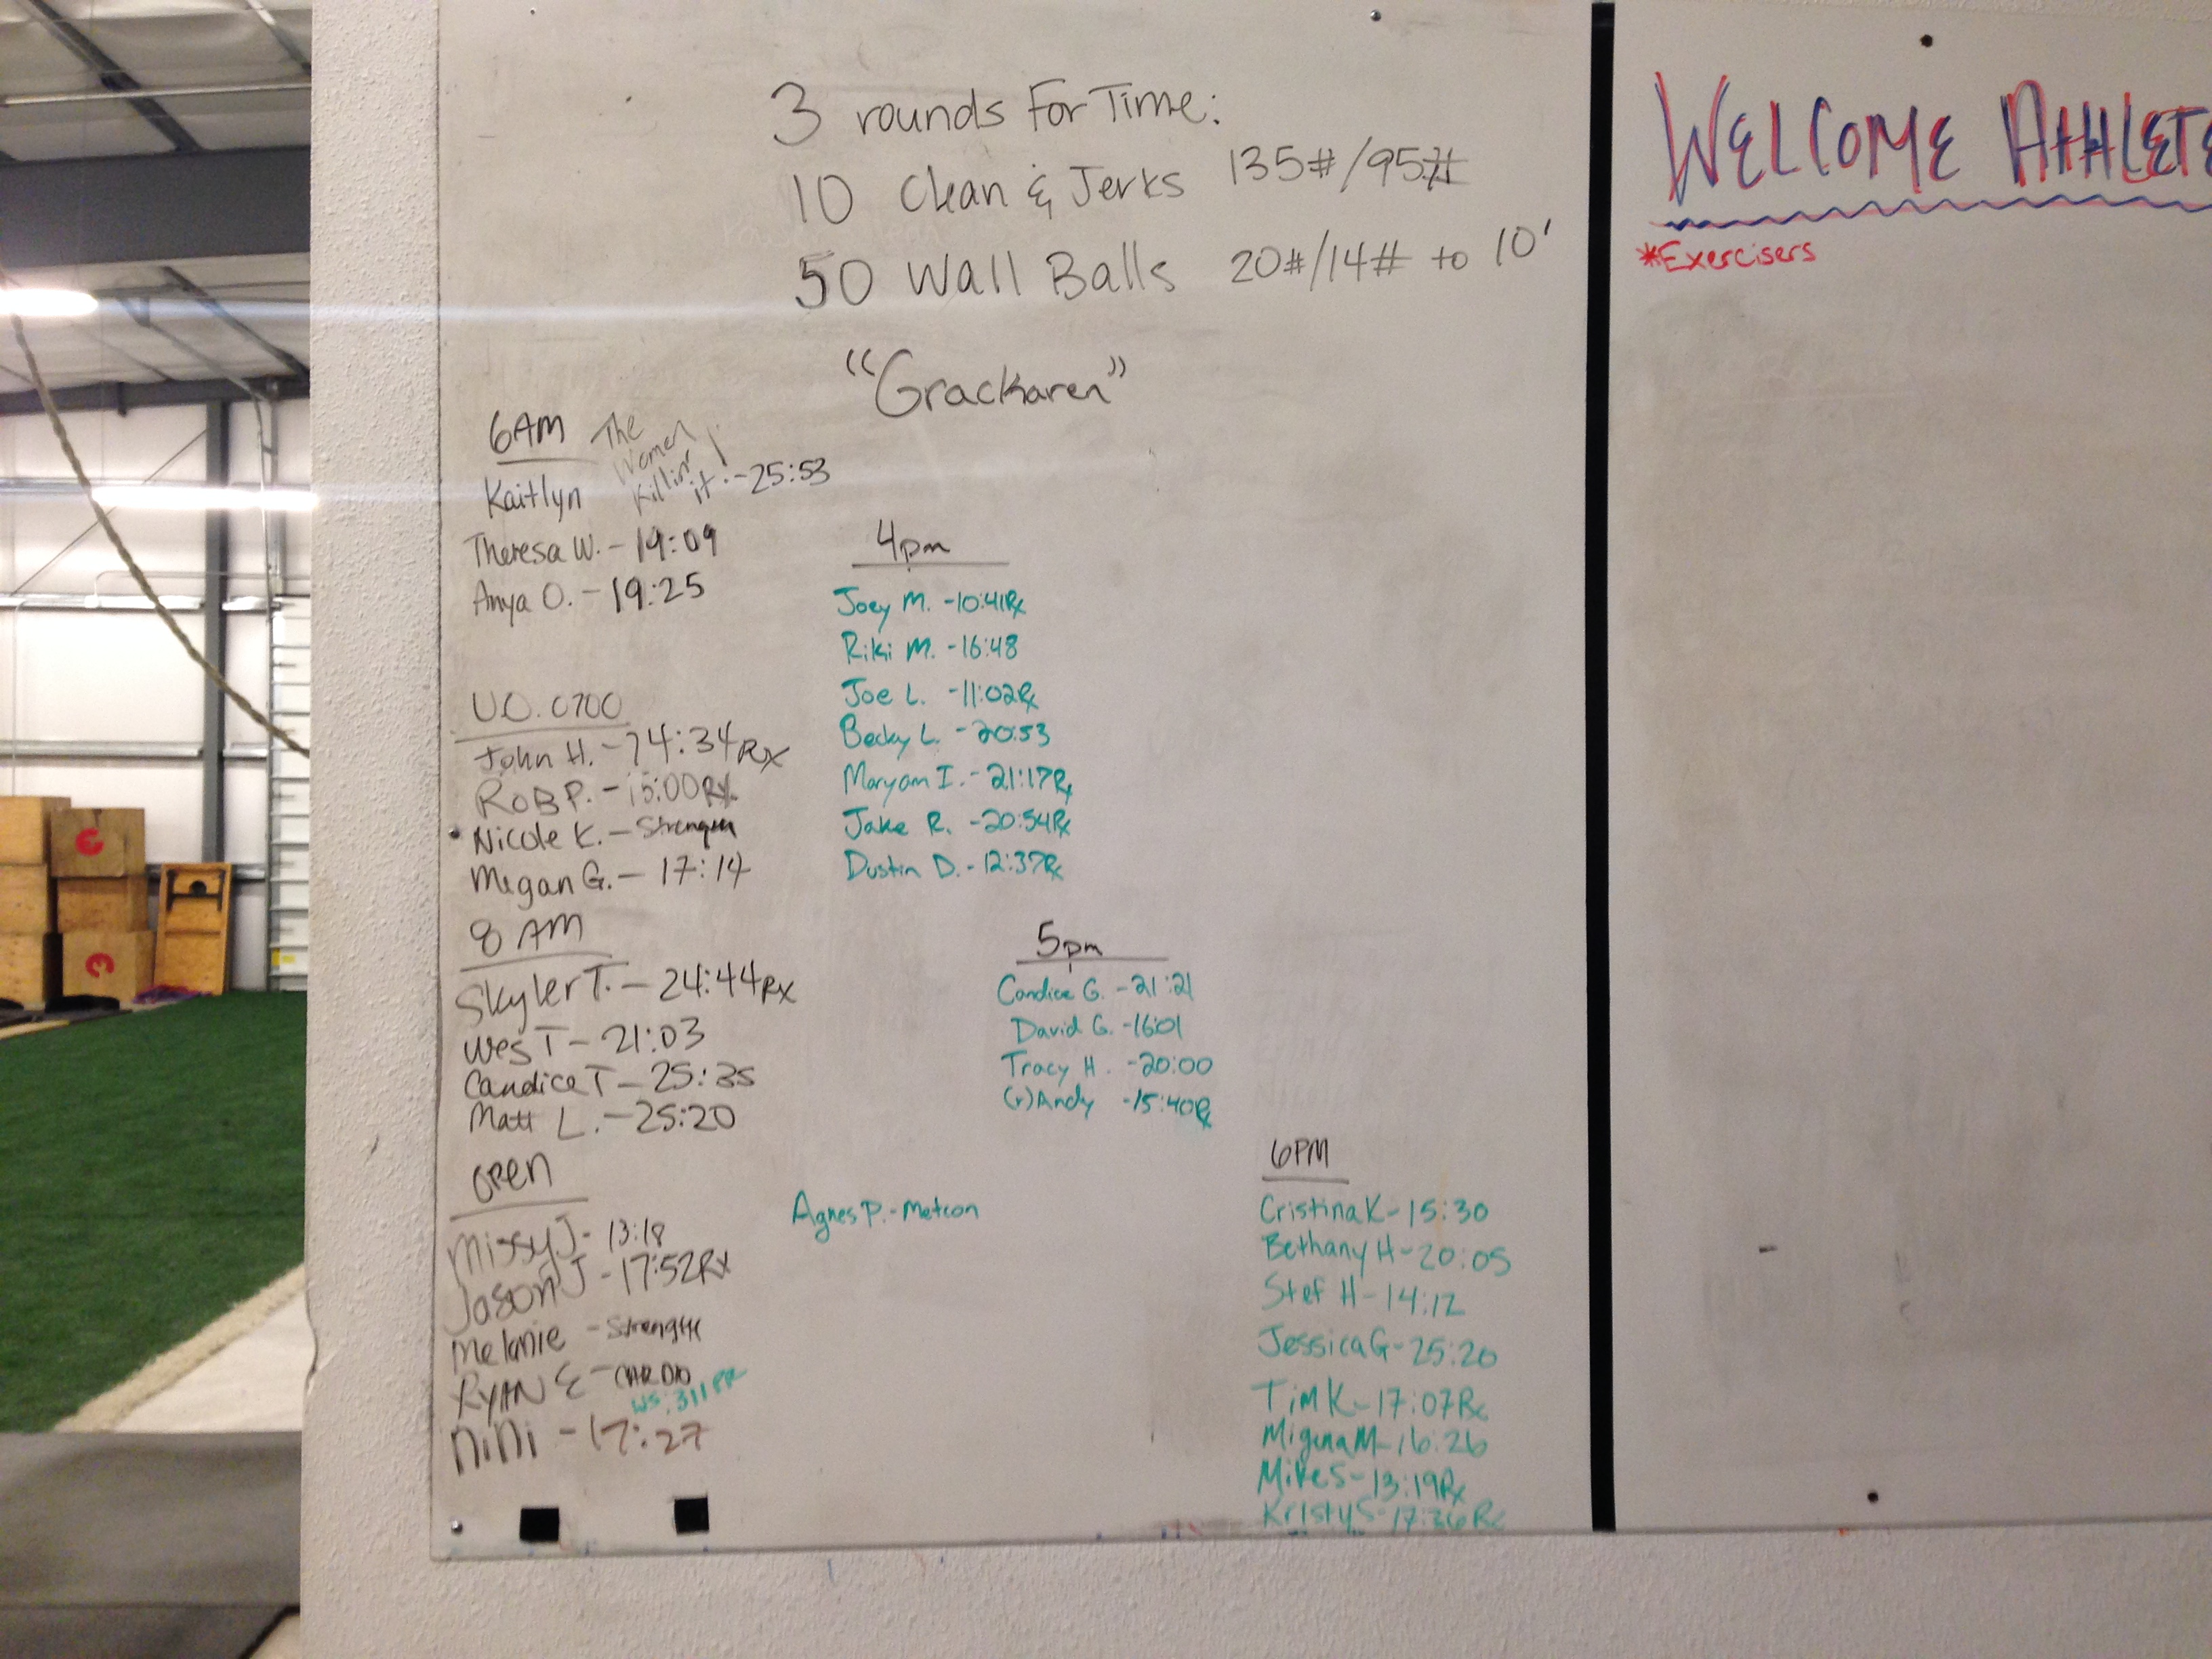 3 rounds For Time:
10 Clean & Jerks 135#/95#
50 Wall Balls 20#/14# to 10'
"Grackaren"
6AM
The Women Killin' it!
Kaitlyn -25:53
Theresa W. - 19:09
Anya O. - 19:25
U.O. 0700
John H. - 14:34 Rx
Rob P. - 15:00 Rx
Nicole K. - Strength
Megan G. - 17:14
8 AM
Skyler T. - 24:44 Rx
Wes T - 21:03
Candice T - 25:35
Matt L. - 25:20
OPEN
Missy J - 13:18
Jason J - 17:52 Rx
Melanie - Strength
RYAN E - CARDIO
WS: 311 PR
NiNi - 17:27
Agnes P. - Metcon
4pm
Joey M. -10:41Rx
Riki M. -16:48
Joe L. -11:02Rx
Becky L. -20:53
Maryam I. -21:17Rx
Jake R. -20:54Rx
Dustin D. -12:37Rx
5pm
Candice G. -21:21
David G. -16:01
Tracy H. -20:00
(r)Andy -15:40Rx
6PM
Cristina K - 15:30
Bethany H - 20:05
Stef H - 14:12
Jessica G - 25:20
Tim K - 17:07Rx
M - 16:26
Mike S - 13:19Rx
Kristy S - 17:36Rx
WELCOME ATHLETE
*Exercisers